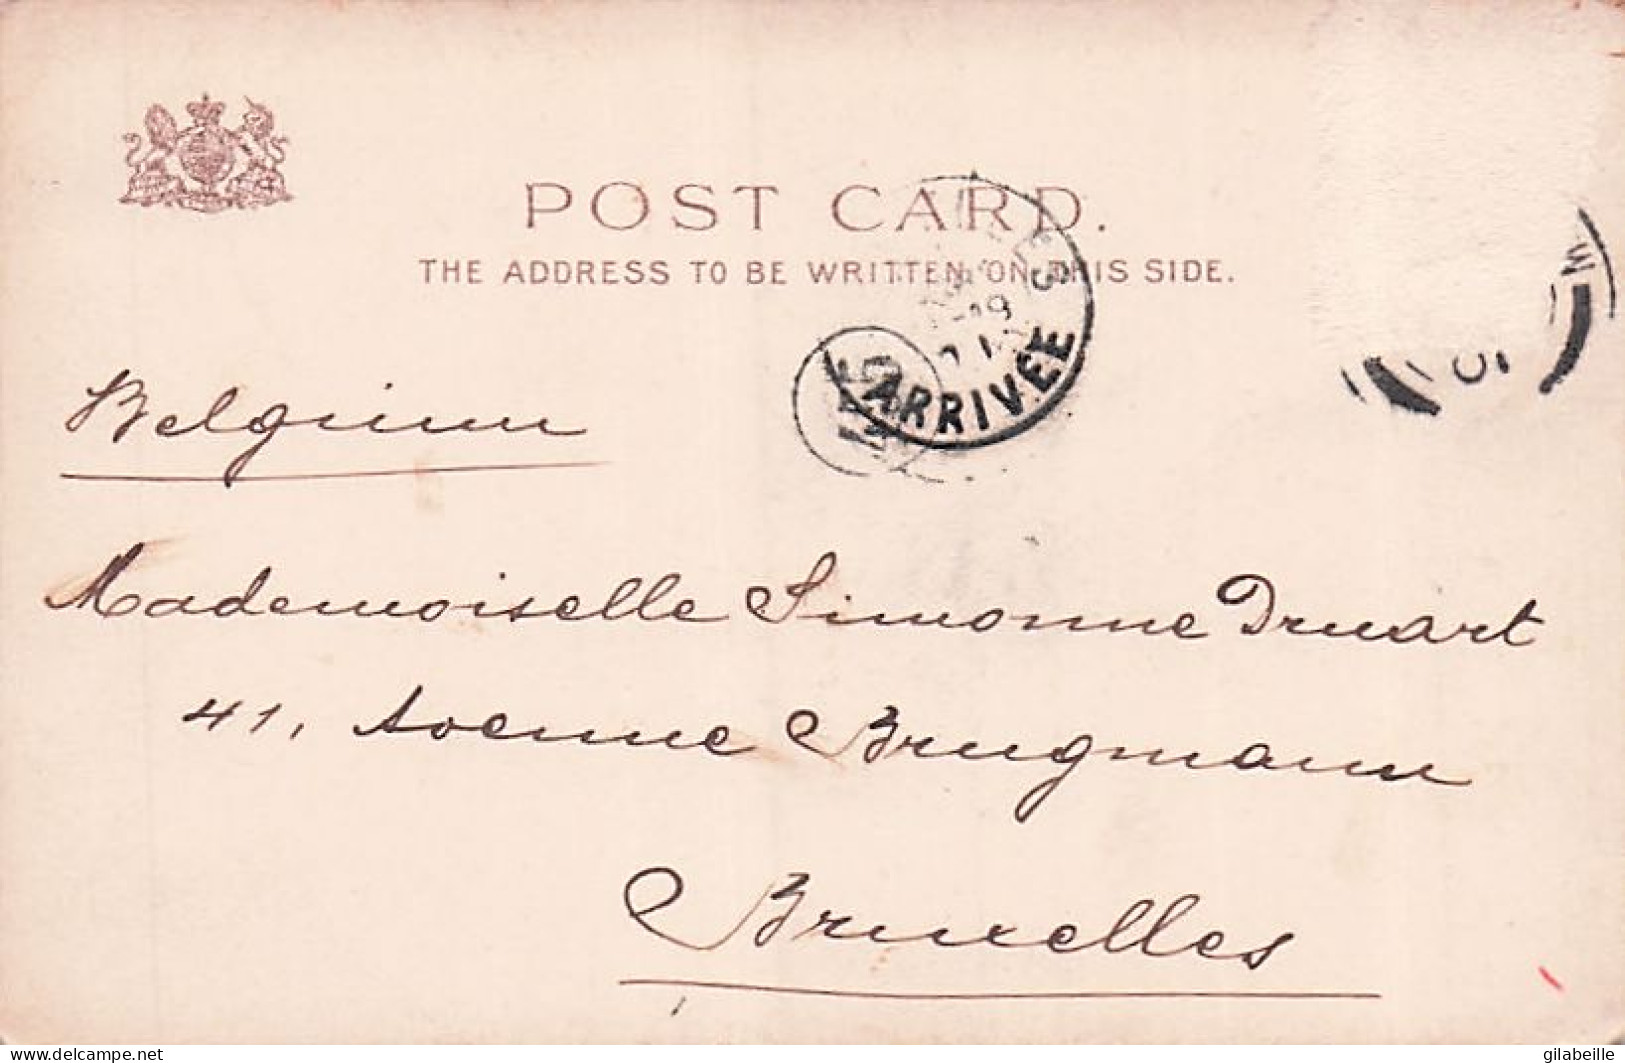 POST CARD.
THE ADDRESS TO BE WRITTEN ON THIS SIDE.
ARRIVÉE
Belgium
Mademoiselle Simonne Druart
41, Avenue Brugmann
Bruxelles
www.delcampe.net
gilabeille